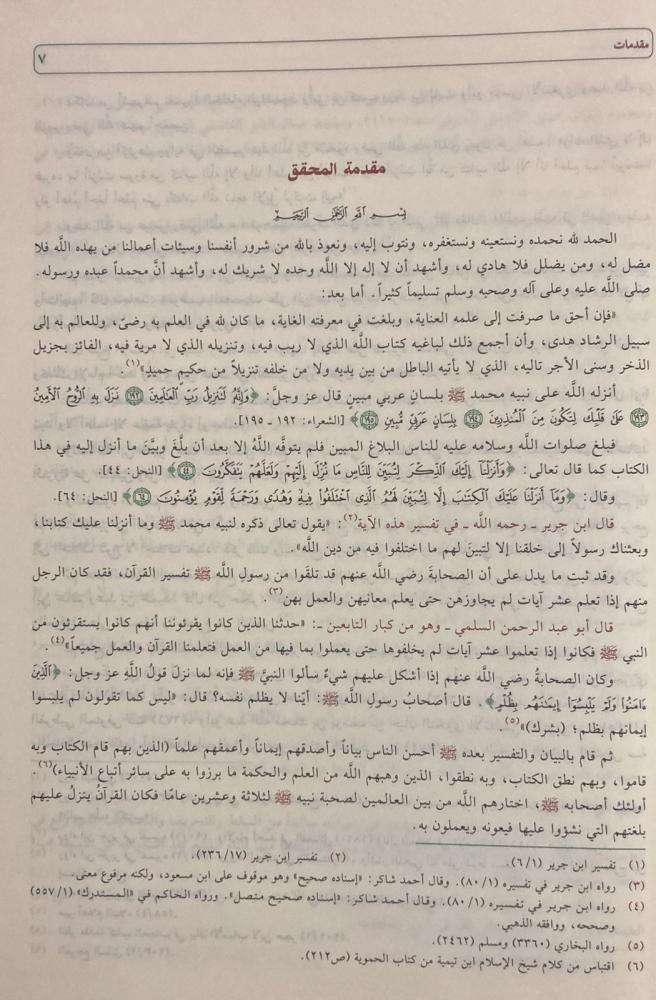 مقدمات
٧
مقدمة المحقق
بسم الله الرحمن الرحيم
الحمد لله نحمده ونستعينه ونستغفره، ونتوب إليه، ونعوذ بالله من شرور أنفسنا وسيئات أعمالنا من يهده اللَّه فلا
مضل له، ومن يضلل فلا هادي له، وأشهد أن لا إله إلا اللَّه وحده لا شريك له، وأشهد أنَّ محمداً عبده ورسوله.
صلى اللَّه عليه وعلى آله وصحبه وسلم تسليماً كثيراً. أما بعد:
«فإن أحق ما صرفت إلى علمه العناية، وبلغت في معرفته الغاية، ما كان لله في العلم به رضىً، وللعالم به إلى
سبيل الرشاد هدى، وأن أجمع ذلك لباغيه كتاب اللَّه الذي لا ريب فيه، وتنزيله الذي لا مرية فيه، الفائز بجزيل
الذخر وسنى الأجر تاليه، الذي لا يأتيه الباطل من بين يديه ولا من خلفه تنزيلاً من حكيمٍ حميدٍ»(١).
أنزله اللَّه على نبيه محمد ﷺ بلسانٍ عربي مبينٍ قال عز وجلَّ: ﴿وَإِنَّهُۥ لَتَنزِيلُ رَبِّ ٱلْعَٰلَمِينَ ﴿١٩٢﴾ نَزَلَ بِهِ ٱلرُّوحُ ٱلْأَمِينُ
﴿١٩٣﴾ عَلَىٰ قَلْبِكَ لِتَكُونَ مِنَ ٱلْمُنذِرِينَ ﴿١٩٤﴾ بِلِسَانٍ عَرَبِيٍّ مُّبِينٍ ﴿١٩٥﴾﴾ [الشعراء: ١٩٢ ـ ١٩٥].
فبلغ صلوات اللَّه وسلامه عليه للناس البلاغ المبين فلم يتوفَّه اللَّهُ إلا بعد أن بلَّغَ وبيَّنَ ما أنزل إليه في هذا
الكتاب كما قال تعالى: ﴿وَأَنزَلْنَآ إِلَيْكَ ٱلذِّكْرَ لِتُبَيِّنَ لِلنَّاسِ مَا نُزِّلَ إِلَيْهِمْ وَلَعَلَّهُمْ يَتَفَكَّرُونَ ﴿٤٤﴾﴾ [النحل: ٤٤].
وقال: ﴿وَمَآ أَنزَلْنَا عَلَيْكَ ٱلْكِتَٰبَ إِلَّا لِتُبَيِّنَ لَهُمُ ٱلَّذِى ٱخْتَلَفُوا۟ فِيهِ وَهُدًى وَرَحْمَةً لِّقَوْمٍ يُؤْمِنُونَ ﴿٦٤﴾﴾ [النحل: ٦٤].
قال ابن جرير ـ رحمه اللَّه ـ في تفسير هذه الآية(٢): «يقول تعالى ذكره لنبيه محمد ﷺ وما أنزلنا عليك كتابنا،
وبعثناك رسولاً إلى خلقنا إلا لتبينَ لهم ما اختلفوا فيه من دين اللَّه».
وقد ثبت ما يدل على أن الصحابةَ رضي اللَّه عنهم قد تلقَّوا من رسولِ اللَّه ﷺ تفسير القرآن، فقد كان الرجل
منهم إذا تعلم عشر آيات لم يجاوزهن حتى يعلم معانيهن والعمل بهن(٣).
قال أبو عبد الرحمن السلمي ـ وهو من كبار التابعين ـ: «حدثنا الذين كانوا يقرئوننا أنهم كانوا يستقرئون من
النبي ﷺ فكانوا إذا تعلموا عشر آيات لم يخلفوها حتى يعملوا بما فيها من العمل فتعلمنا القرآن والعمل جميعاً»(٤).
وكان الصحابةُ رضي اللَّه عنهم إذا أشكل عليهم شيءٌ سألوا النبيَّ ﷺ فإنه لما نزلَ قولُ اللَّهِ عز وجل: ﴿ٱلَّذِينَ
ءَامَنُوا۟ وَلَمْ يَلْبِسُوٓا۟ إِيمَٰنَهُم بِظُلْمٍ﴾. قال أصحابُ رسولِ اللَّه ﷺ: أيّنا لا يظلم نفسه؟ قال: «ليس كما تقولون لم يلبسوا
إيمانهم بظلم؛ (بشرك)»(٥).
ثم قام بالبيان والتفسير بعده ﷺ أحسن الناس بياناً وأصدقهم إيماناً وأعمقهم علماً (الذين بهم قام الكتاب وبه
قاموا، وبهم نطق الكتاب، وبه نطقوا، الذين وهبهم اللَّه من العلم والحكمة ما برزوا به على سائر أتباع الأنبياء)(٦).
أولئك أصحابه ﷺ، اختارهم اللَّه من بين العالمين لصحبة نبيه ﷺ لثلاثة وعشرين عامًا فكان القرآنُ ينزلُ عليهم
بلغتهم التي نشؤوا عليها فيعونه ويعملون به.
(١) تفسير ابن جرير (٦/١). (٢) تفسير ابن جرير (٢٣٦/١٧).
(٣) رواه ابن جرير في تفسيره (٨٠/١). وقال أحمد شاكر: «إسناده صحيح» وهو موقوف على ابن مسعود، ولكنه مرفوع معنى.
(٤) رواه ابن جرير في تفسيره (٨٠/١). وقال أحمد شاكر: «إسناده صحيح متصل». ورواه الحاكم في «المستدرك» (٥٥٧/١)
وصححه، ووافقه الذهبي.
(٥) رواه البخاري (٣٣٦٠) ومسلم (٢٤٦٢).
(٦) اقتباس من كلام شيخ الإسلام ابن تيمية من كتاب الحموية (ص٢١٢).